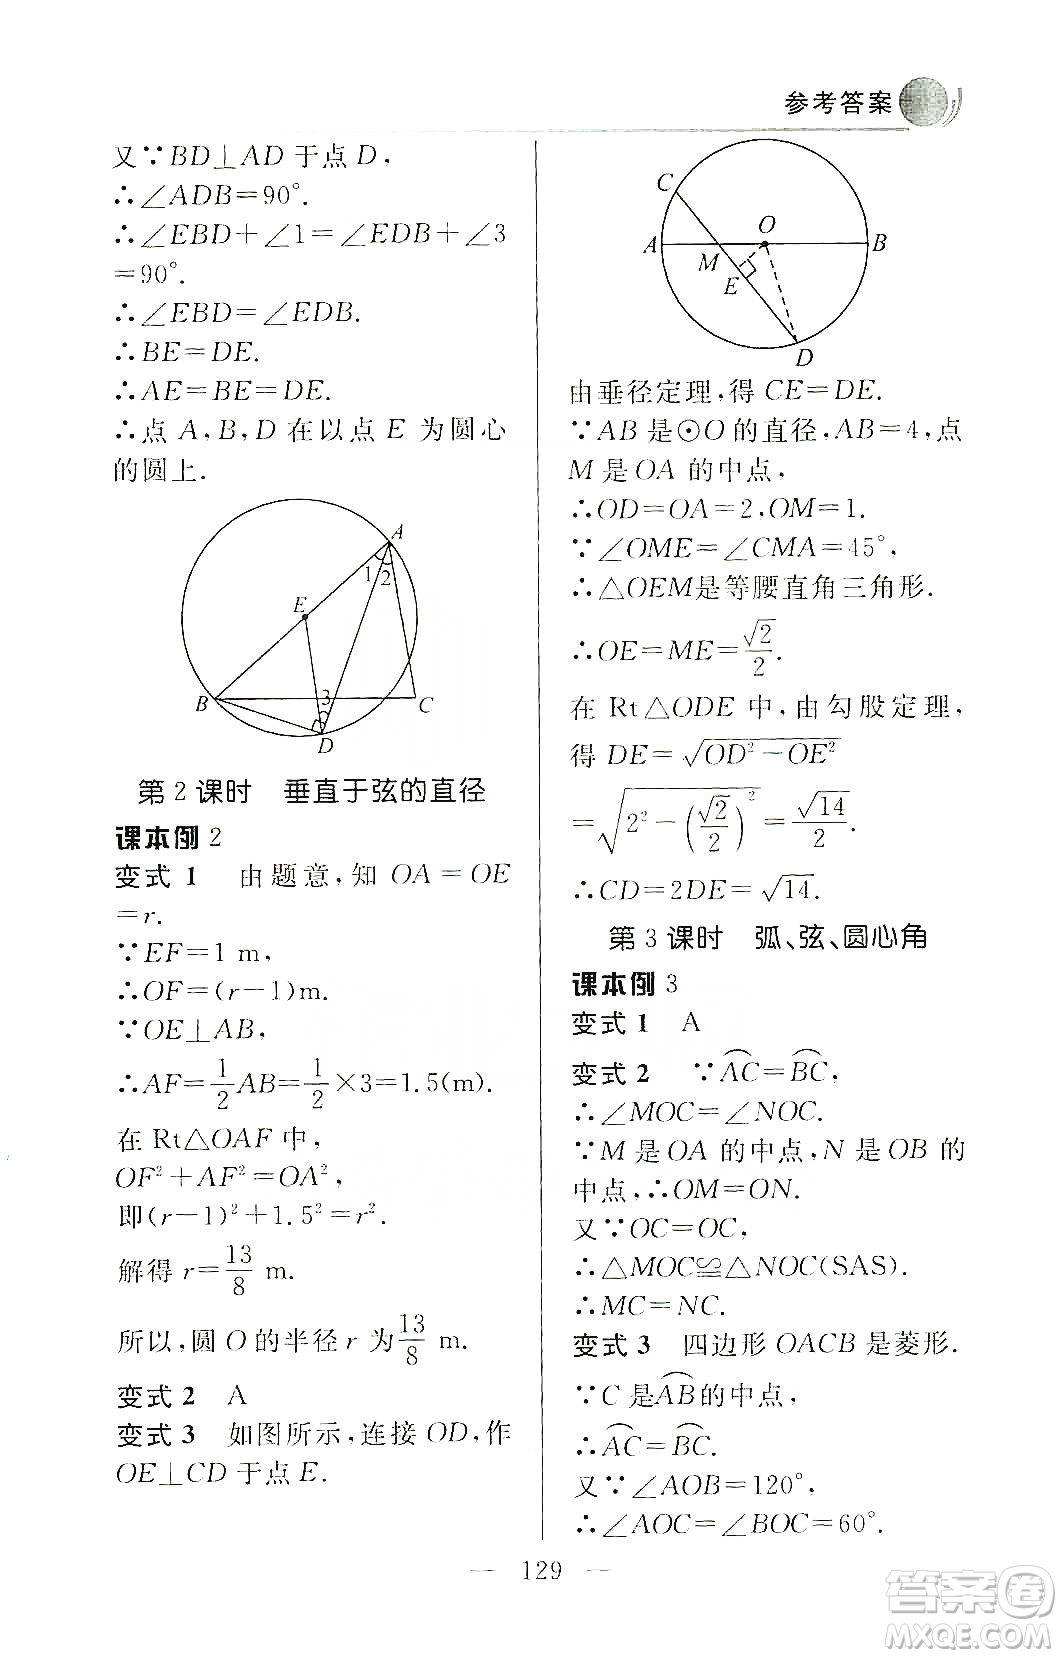 参考答案
又∵BD⊥AD 于点 D,
∴∠ADB=90°.
∴∠EBD+∠1=∠EDB+∠3
=90°.
∴∠EBD=∠EDB.
∴BE=DE.
∴AE=BE=DE.
∴点 A,B,D 在以点 E 为圆心
的圆上.
A
1
2
E
3
B
C
D
第 2 课时 垂直于弦的直径
课本例 2
变式 1 由题意,知 OA=OE
=r.
∵EF=1 m,
∴OF=(r-1)m.
∵OE⊥AB,
∴AF=1/2AB=1/2×3=1.5(m).
在 Rt△OAF 中,
OF²+AF²=OA²,
即(r-1)²+1.5²=r².
解得 r=13/8 m.
所以,圆 O 的半径 r 为 13/8 m.
变式 2 A
变式 3 如图所示,连接 OD,作
OE⊥CD 于点 E.
C
O
A
B
M
E
D
由垂径定理,得 CE=DE.
∵AB 是⊙O 的直径,AB=4,点
M 是 OA 的中点,
∴OD=OA=2,OM=1.
∵∠OME=∠CMA=45°,
∴△OEM是等腰直角三角形.
∴OE=ME=√2/2.
在 Rt△ODE 中,由勾股定理,
得 DE=√(OD²-OE²)
=√(2²-(√2/2)²)=√14/2.
∴CD=2DE=√14.
第 3 课时 弧、弦、圆心角
课本例 3
变式 1 A
变式 2 ∵⌒AC=⌒BC,
∴∠MOC=∠NOC.
∵M 是 OA 的中点,N 是 OB 的
中点,∴OM=ON.
又∵OC=OC,
∴△MOC≌△NOC(SAS).
∴MC=NC.
变式 3 四边形 OACB 是菱形.
∵C 是⌒AB的中点,
∴⌒AC=⌒BC.
又∵∠AOB=120°,
∴∠AOC=∠BOC=60°.
— 129 —
答案圈
MXQE.COM